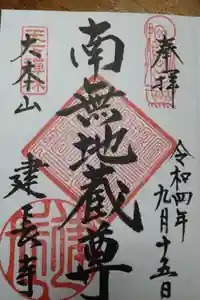 奉拝
令和四年九月十五日
南無地蔵尊
大本山
建長寺